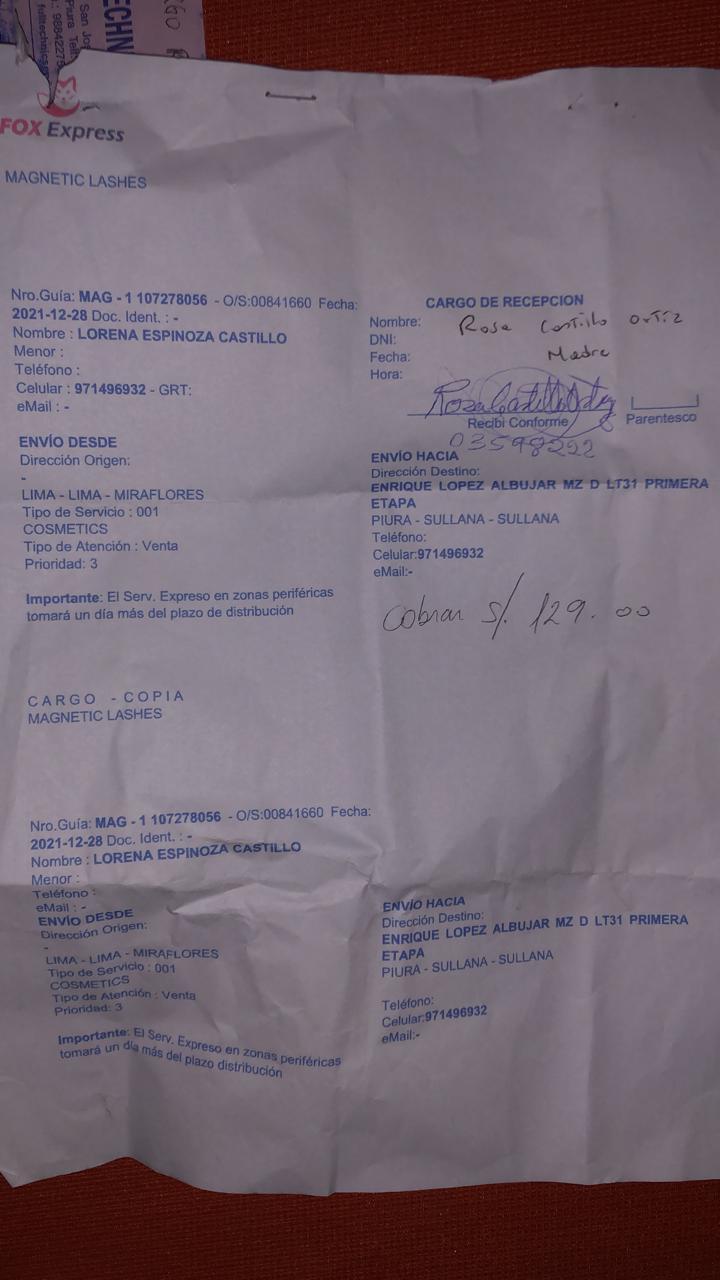 ECHN
San Jo
Piura Telf
.: 98842275
fulltechnics
FOX Express
MAGNETIC LASHES
Nro.Guía: MAG - 1 107278056 - O/S:00841660 Fecha:
2021-12-28 Doc. Ident. : -
Nombre : LORENA ESPINOZA CASTILLO
Menor :
Teléfono :
Celular : 971496932 - GRT:
eMail : -
ENVÍO DESDE
Dirección Origen:
-
LIMA - LIMA - MIRAFLORES
Tipo de Servicio : 001
COSMETICS
Tipo de Atención : Venta
Prioridad: 3
Importante: El Serv. Expreso en zonas periféricas
tomará un día más del plazo de distribución
CARGO DE RECEPCION
Nombre: Rosa Castillo Ortiz
DNI:
Fecha: Madre
Hora:
Rosa Castillo Ortiz
Recibi Conforme Parentesco
03598222
ENVÍO HACIA
Dirección Destino:
ENRIQUE LOPEZ ALBUJAR MZ D LT31 PRIMERA
ETAPA
PIURA - SULLANA - SULLANA
Teléfono:
Celular:971496932
eMail:-
Cobrar S/. 129.00
CARGO - COPIA
MAGNETIC LASHES
Nro.Guía: MAG - 1 107278056 - O/S:00841660 Fecha:
2021-12-28 Doc. Ident. : -
Nombre : LORENA ESPINOZA CASTILLO
Menor :
Teléfono :
eMail : -
ENVÍO DESDE
Dirección Origen:
-
LIMA - LIMA - MIRAFLORES
Tipo de Servicio : 001
COSMETICS
Tipo de Atención : Venta
Prioridad: 3
Importante: El Serv. Expreso en zonas periféricas
tomará un día más del plazo distribución
ENVÍO HACIA
Dirección Destino:
ENRIQUE LOPEZ ALBUJAR MZ D LT31 PRIMERA
ETAPA
PIURA - SULLANA - SULLANA
Teléfono:
Celular:971496932
eMail:-